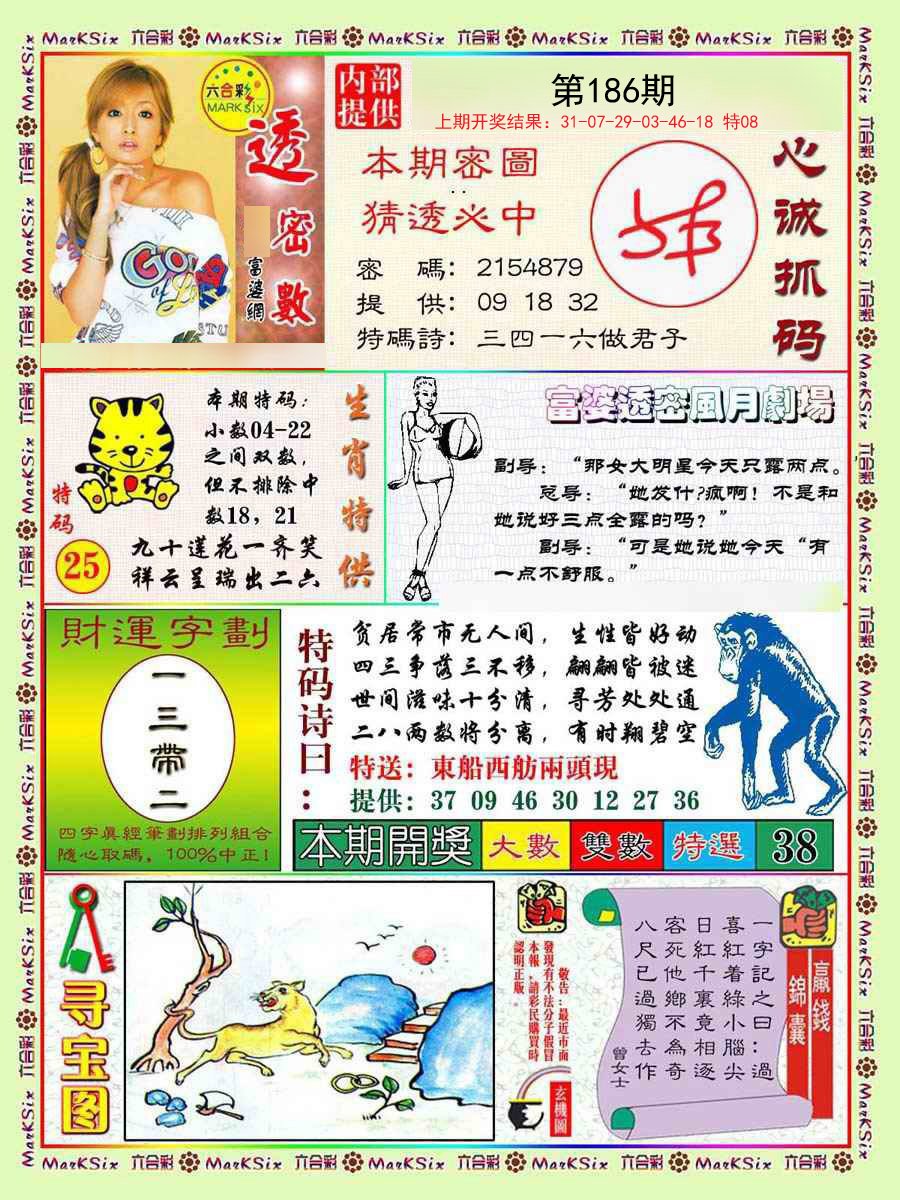 MarKSix 六合彩
六合彩
MARK SIX
透密數
富婆網
内部
提供
第186期
上期开奖结果：31-07-29-03-46-18 特08
本期密圖
猜透必中
密 碼：2154879
提 供：09 18 32
特碼詩：三四一六做君子
心诚抓码
特码
25
本期特码：
小数04-22
之间双数，
但不排除中
数18，21
九十莲花一齐笑
祥云呈瑞出二六
生肖特供
富婆透密風月劇場
副导：“那女大明星今天只露两点。”
总导：“她发什?疯啊！不是和
她说好三点全露的吗？”
副导：“可是她说她今天“有
一点不舒服。”
財運字劃
一三帶二
四字真經筆劃排列組合
隨心取碼，100%中正!
特码诗曰：
贫居常市无人间，生性皆好动
四三争落三不移，翩翩皆被迷
世间滋味十分清，寻芳处处通
二八两数将分离，有时翔碧空
特送：東船西舫兩頭現
提供：37 09 46 30 12 27 36
本期開獎
大數
雙數
特選
38
寻宝图
敬告:最近市面
發現有不法分子假冒
本報,請彩民購買時
認明正版。
玄機圖
贏錢
錦囊
一字記之曰：過
喜紅着綠小腦尖
日紅千裏竟相逐
客死他鄉不為奇
八尺已過獨去作
曾女士